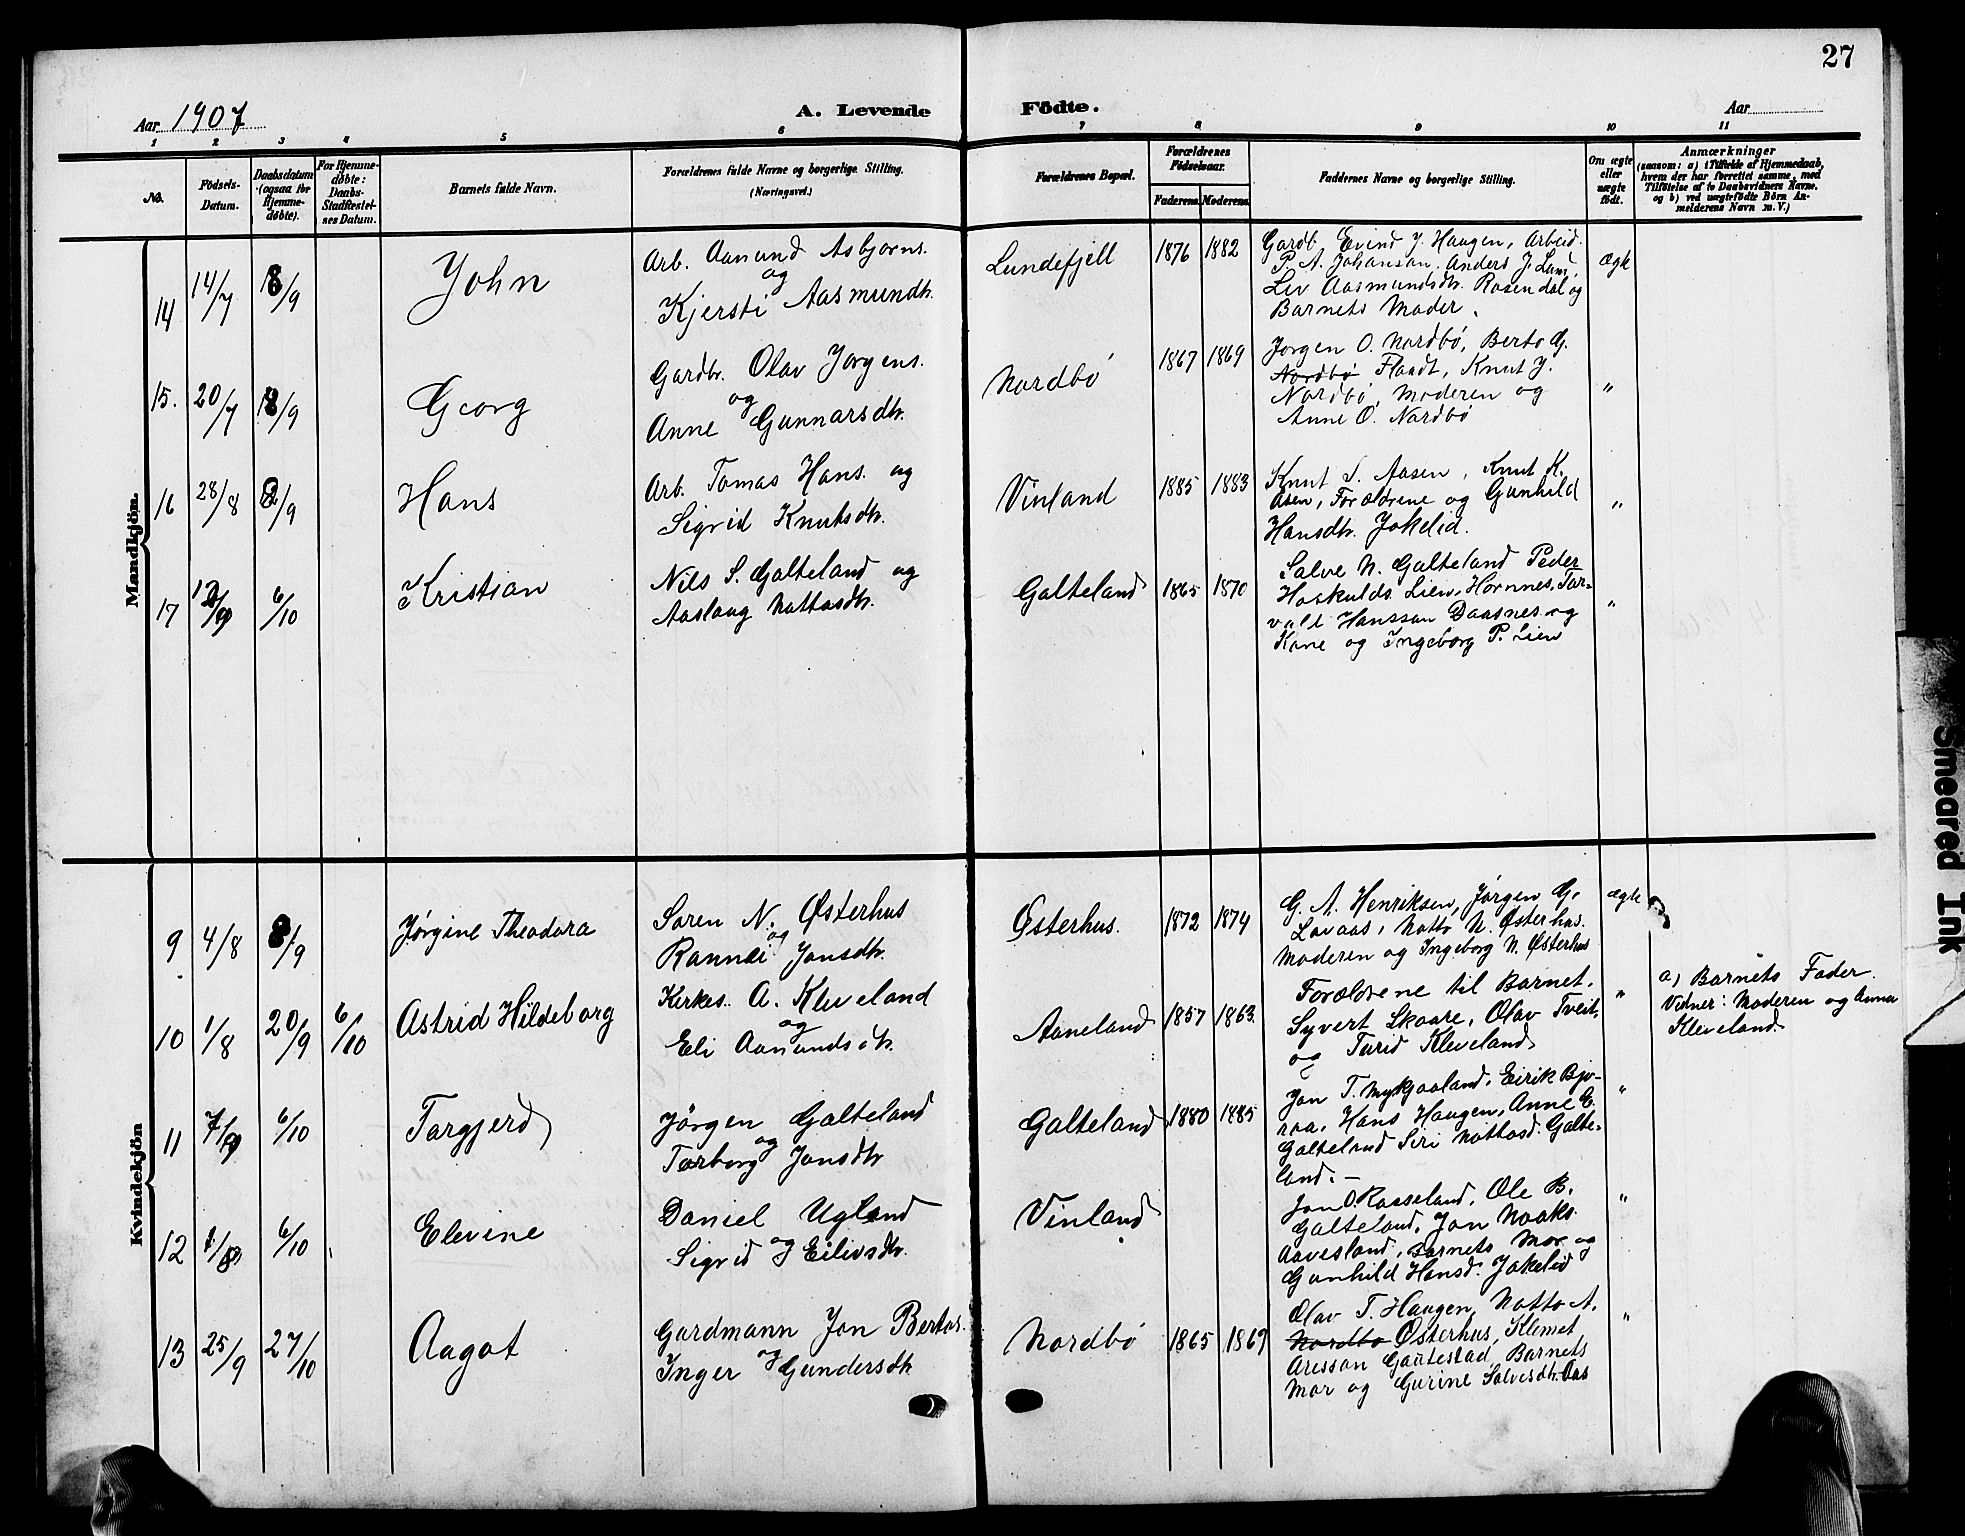 27
Aar 1907
A. Levende Födte.
Aar
1 2 3 4 5 6 7 8 9 10 11
No.
Födsels-Datum.
Daabsdatum (ogsaa for Hjemmedöbte).
For Hjemmedöbte: Daabs-Stadfæstelses Datum.
Barnets fulde Navn.
Forældrenes fulde Navne og borgerlige Stilling.
(Næringsvei.)
Forældrenes Bopæl.
Forældrenes Födselsaar.
Faderens. Moderens.
Faddernes Navne og borgerlige Stilling.
Om ægte eller uægte födt.
Anmærkninger
(saasom: a) i Tilfælde af Hjemmedaab,
hvem der har forrettet samme, med
Tilföielse af to Daabsvidners Navne.
og b) ved uægtefödte Börn An-
melderens Navn m. V.)
Mandkjön.
14 14/7 8/9 John
Arb. Aanund Asbjørns.
og
Kjersti Aasmundh.
Lundefjell 1876 1882
Gardb. Eivind J. Haugen, Arbeid.
P. A. Johanson. Anders J. Lund,
Liv Aasmundsdtr. Rosendal og
Barnets Moder.
ægte
15. 20/7 8/9 Georg
Gardbr. Olav Jørgens.
og
Anne Gunnarsdtr.
Nordbö 1867 1869
Jørgen O. Nordbö, Berto G.
Nordbö Flaadt, Knut J.
Nordbö, Moderen og
Anne O. Nordbö
"
16 28/8 /9 Hans
Arb. Tomas Hans. og
Sigrid Knutsdtr.
Vinland 1885 1883
Knut S. Aasen, Knut K.
Aasen, Forældrene og Gunhild
Hansdtr. Jokelid.
"
17 /9 6/10 Kristian
Nils S. Galteland og
Aaslaug Nottosdtr.
Galteland 1865 1870
Salve N. Galteland Peder
Hoskulds. Lien, Hornnes, Tor-
vald Hansson Daasnes og
Kone og Ingeborg P. Lien
"
Kvindekjön
9 4/8 8/9 Jørgine Theodora
Soren N. Østerhus
og
Rannei Jonsdtr.
Østerhus. 1872 1874
G. A. Henriksen, Jørgen G.
Lovaas, Notto N. Østerhus.
Moderen og Ingeborg N. Østerhus
ægte
10 1/8 20/9 6/10 Astrid Hildeborg
Kirkes. A. Kleveland
og
Eli Aanundsdtr.
Aaneland 1857 1863.
Forældrene til Barnet.
Syvert Skaare, Olav Tveit.
og Turid Kleveland
"
a) Barnets Fader.
Vidner: Moderen og Anna
Kleveland
11 7/9 6/10 Torgjerd
Jørgen Galteland
og
Torborg Jonsdtr
Galteland 1880 1885
Jon T. Mykjaaland, Eirik Bjo-
raa, Hans Haugen, Anne E.
Galteland Siri Nottosd. Galte-
land. —
"
12 6/10 Elevine
Daniel Ugland
og
Sigrid Eilivsdtr.
Vinland
Jon O. Raaseland, Ole B.
Galteland, Jon Noaks.
Aavesland, Barnets Mor og
Gunhild Hansd. Jokelid
"
13 25/9 27/10 Aagot
Gardmann Jon Bertos.
og
Inger Gundersdtr.
Nordbö 1865 1869
Olav T. Haugen, Notto A.
Nordbö Østerhus, Klemet
Aresson Gautestad, Barnets
Mor og Gurine Salvesdtr. Aas
"
Smeared Ink